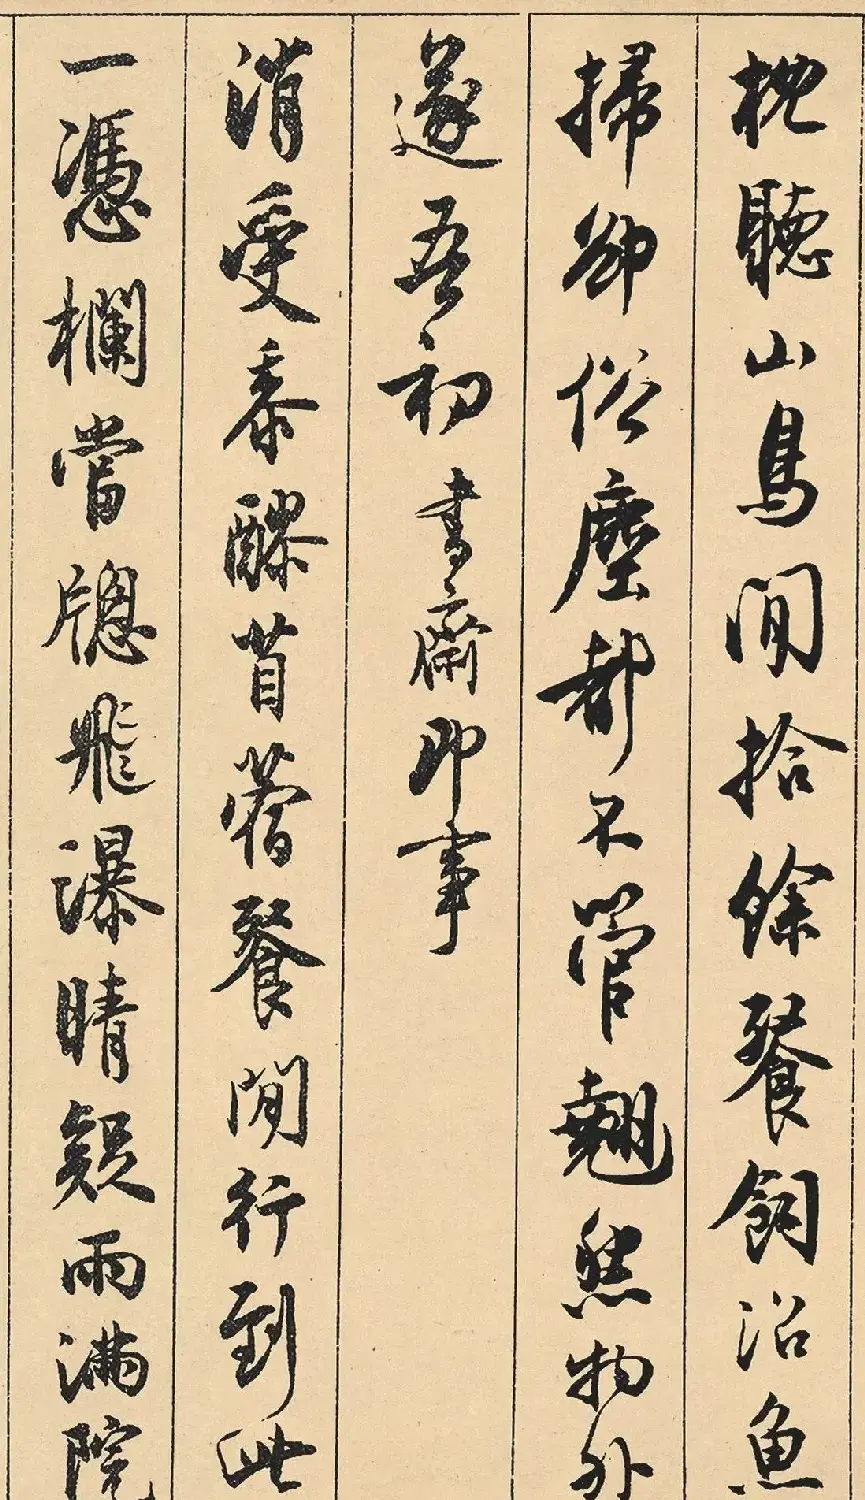 枕聽山鳥閒拾餘餐飼沼魚
掃卻俗塵都不管翹然物外
遂吾初 書齋即事
消受黍醪苜蓿餐閒行到此
一憑欄當牕飛瀑晴疑雨滿院